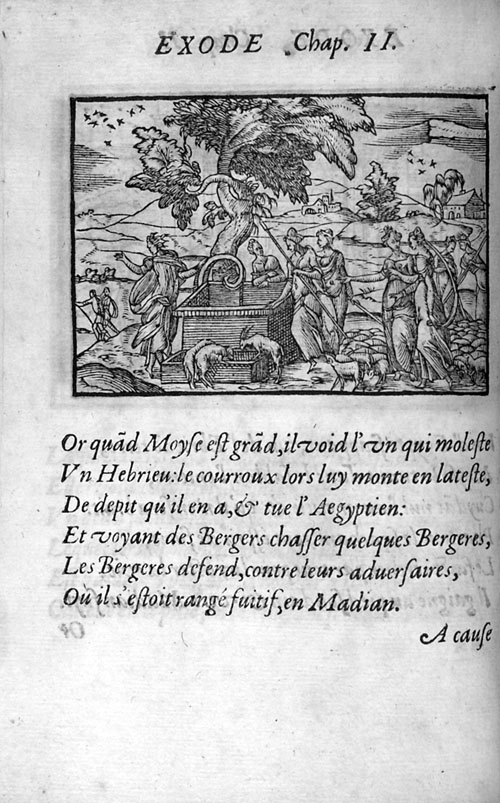 EXODE Chap. II.
Or quãd Moyse est grãd, il void l'vn qui moleste
Vn Hebrieu: le courroux lors luy monte en lateste,
De depit qu'il en a, & tue l'Aegyptien:
Et voyant des Bergers chasser quelques Bergeres,
Les Bergeres defend, contre leurs aduersaires,
Où il s'estoit rangé fuitif, en Madian.
A cause